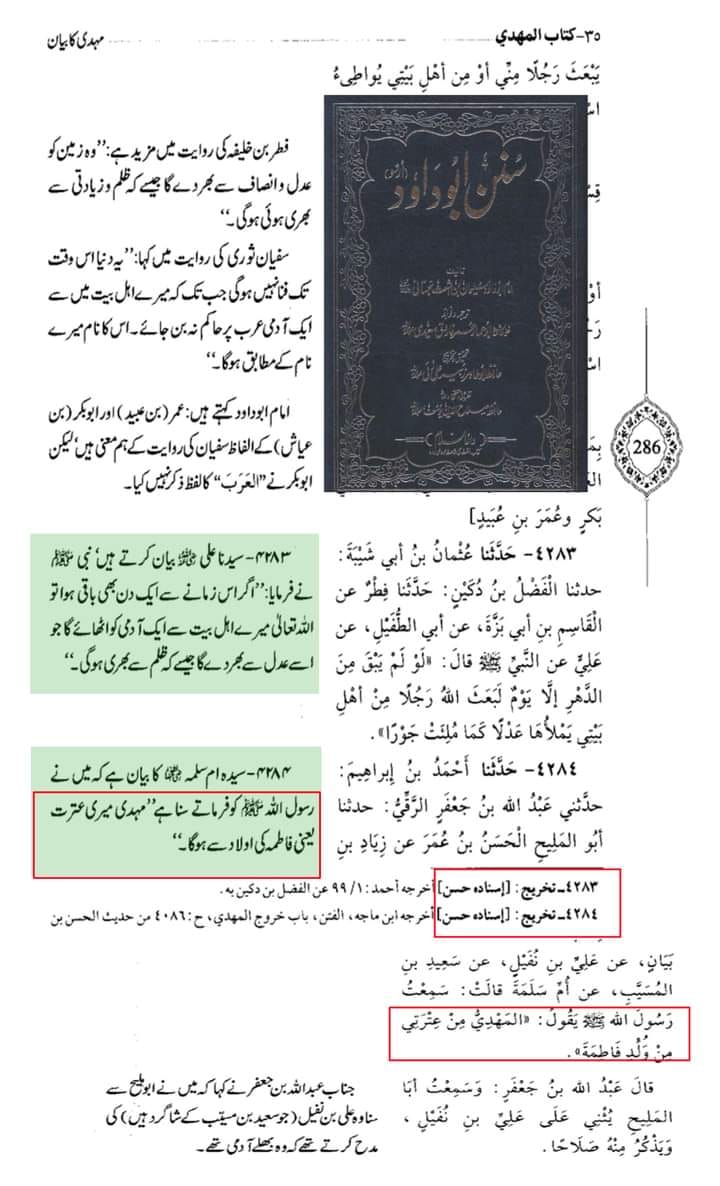 ٣٥-كتاب المهدي
مہدی کا بیان
يَبْعَثَ رَجُلًا مِنِّي أوْ مِن أهْلِ بَيْتِي يُواطِىءُ
اس
قِسْ
أوْ
رَجُ
اس
بِمَ
بَكرٍ وعُمَرَ بنِ عُبَيدٍ]
فطر بن خلیفہ کی روایت میں مزید ہے: ’’وہ زمین کو
عدل و انصاف سے بھر دے گا جیسے کہ ظلم و زیادتی سے
بھری ہوئی ہوگی۔‘‘
سفیان ثوری کی روایت میں کہا: ’’یہ دنیا اس وقت
تک فنا نہیں ہوگی جب تک کہ میرے اہل بیت میں سے
ایک آدمی عرب پر حاکم نہ بن جائے۔ اس کا نام میرے
نام کے مطابق ہوگا۔‘‘
امام ابوداود کہتے ہیں: عمر (بن عبید) اور ابوبکر (بن
عیاش) کے الفاظ سفیان کی روایت کے ہم معنی ہیں‘ لیکن
ابوبکر نے ’’العَرَبَ‘‘ کا لفظ ذکر نہیں کیا۔
سُنن ابوداود (اُردو)
تالیف
286
٤٢٨٣- حَدَّثَنا عُثْمانُ بنُ أبي شَيْبَةَ:
حدثنا الْفَضْلُ بنُ دُكَيْنٍ: حَدَّثَنا فِطْرٌ عن
الْقَاسِمِ بنِ أبي بَزَّةَ، عن أبي الطُّفَيْلِ، عن
عَلِيٍّ عن النَّبيِّ ﷺ قالَ: «لَوْ لَمْ يَبْقَ مِنَ
الدَّهْرِ إلَّا يَوْمٌ لَبَعَثَ اللهُ رَجُلًا مِنْ أهْلِ
بَيْتِي يَمْلأُهَا عَدْلًا كَمَا مُلِئَتْ جَوْرًا».
۴۲۸۳- سیدنا علی ؓ بیان کرتے ہیں‘ نبی ﷺ
نے فرمایا: ’’اگر اس زمانے سے ایک دن بھی باقی ہوا تو
اللہ تعالیٰ میرے اہل بیت سے ایک آدمی کو اٹھائے گا جو
اسے عدل سے بھر دے گا جیسے کہ ظلم سے بھری ہوگی۔‘‘
٤٢٨٤- حَدَّثَنا أَحْمَدُ بنُ إبراهِيمَ:
حدَّثني عَبْدُ الله بنُ جَعْفَرٍ الرَّقِّيُّ: حدثنا
أبُو المَلِيحِ الْحَسَنُ بنُ عُمَرَ عن زِيَادِ بنِ
۴۲۸۴- سیدہ ام سلمہ ؓ کا بیان ہے کہ میں نے
رسول اللہ ﷺ کو فرماتے سنا ہے ’’مہدی میری عترت
یعنی فاطمہ کی اولاد سے ہوگا۔‘‘
٤٢٨٣ـ تخريج: [إسناده حسن] أخرجه أحمد: ١/ ٩٩ عن الفضل بن دكين به.
٤٢٨٤ـ تخريج: [إسناده حسن] أخرجه ابن ماجه، الفتن، باب خروج المهدي، ح: ٤٠٨٦ من حديث الحسن بن
بَيَانٍ، عن عَلِيِّ بنِ نُفَيْلٍ، عن سَعِيدِ بنِ
المُسَيَّبِ، عن أُمِّ سَلَمَةَ قالَتْ: سَمِعْتُ
رَسُولَ الله ﷺ يَقُولُ: «المَهْدِيُّ مِنْ عِتْرَتِي
مِنْ وَلَدِ فَاطمَةَ».
قالَ عَبْدُ الله بنُ جَعْفَرٍ: وَسَمِعْتُ أبَا
المَلِيحِ يُثْنِي عَلَى عَلِيِّ بنِ نُفَيْلٍ،
وَيَذْكُرُ مِنْهُ صَلَاحًا.
جناب عبداللہ بن جعفر نے کہا کہ میں نے ابوملیح سے
سنا وہ علی بن نفیل (جو سعید بن مسیتب کے شاگرد ہیں) کی
مدح کرتے تھے کہ وہ بھلے آدمی تھے۔